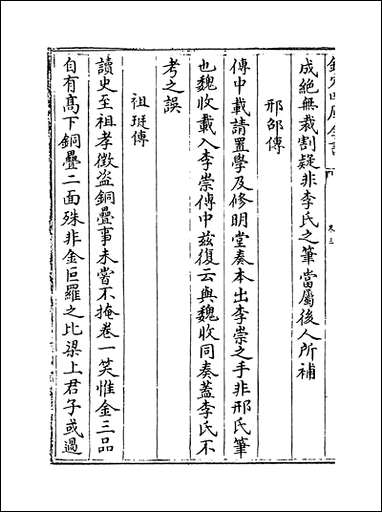 成絶無裁割疑非李氏之筆當屬後人所補
邢邵傳
傳中載請置學及修明堂奏本出李崇之手非邢氏筆
也魏收載入李崇傳中兹復云與魏收同奏蓋李氏不
考之誤
祖珽傳
讀史至祖孝徵盗銅疊事未嘗不掩卷一笑惟金三品
自有髙下銅疊二面殊非金叵羅之比梁上君子或過